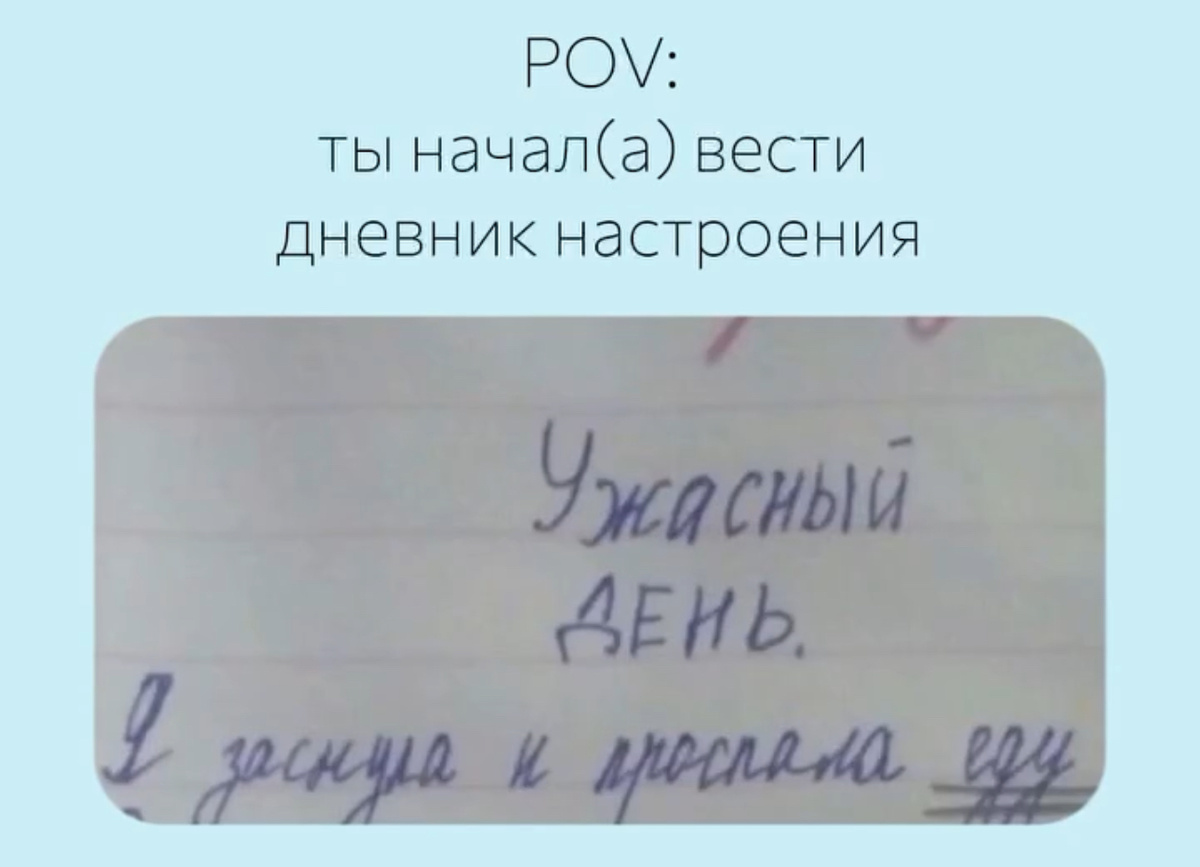 POV:
ты начал(а) вести
дневник настроения
Ужасный
ДЕНЬ.
Я заснула и проспала еду